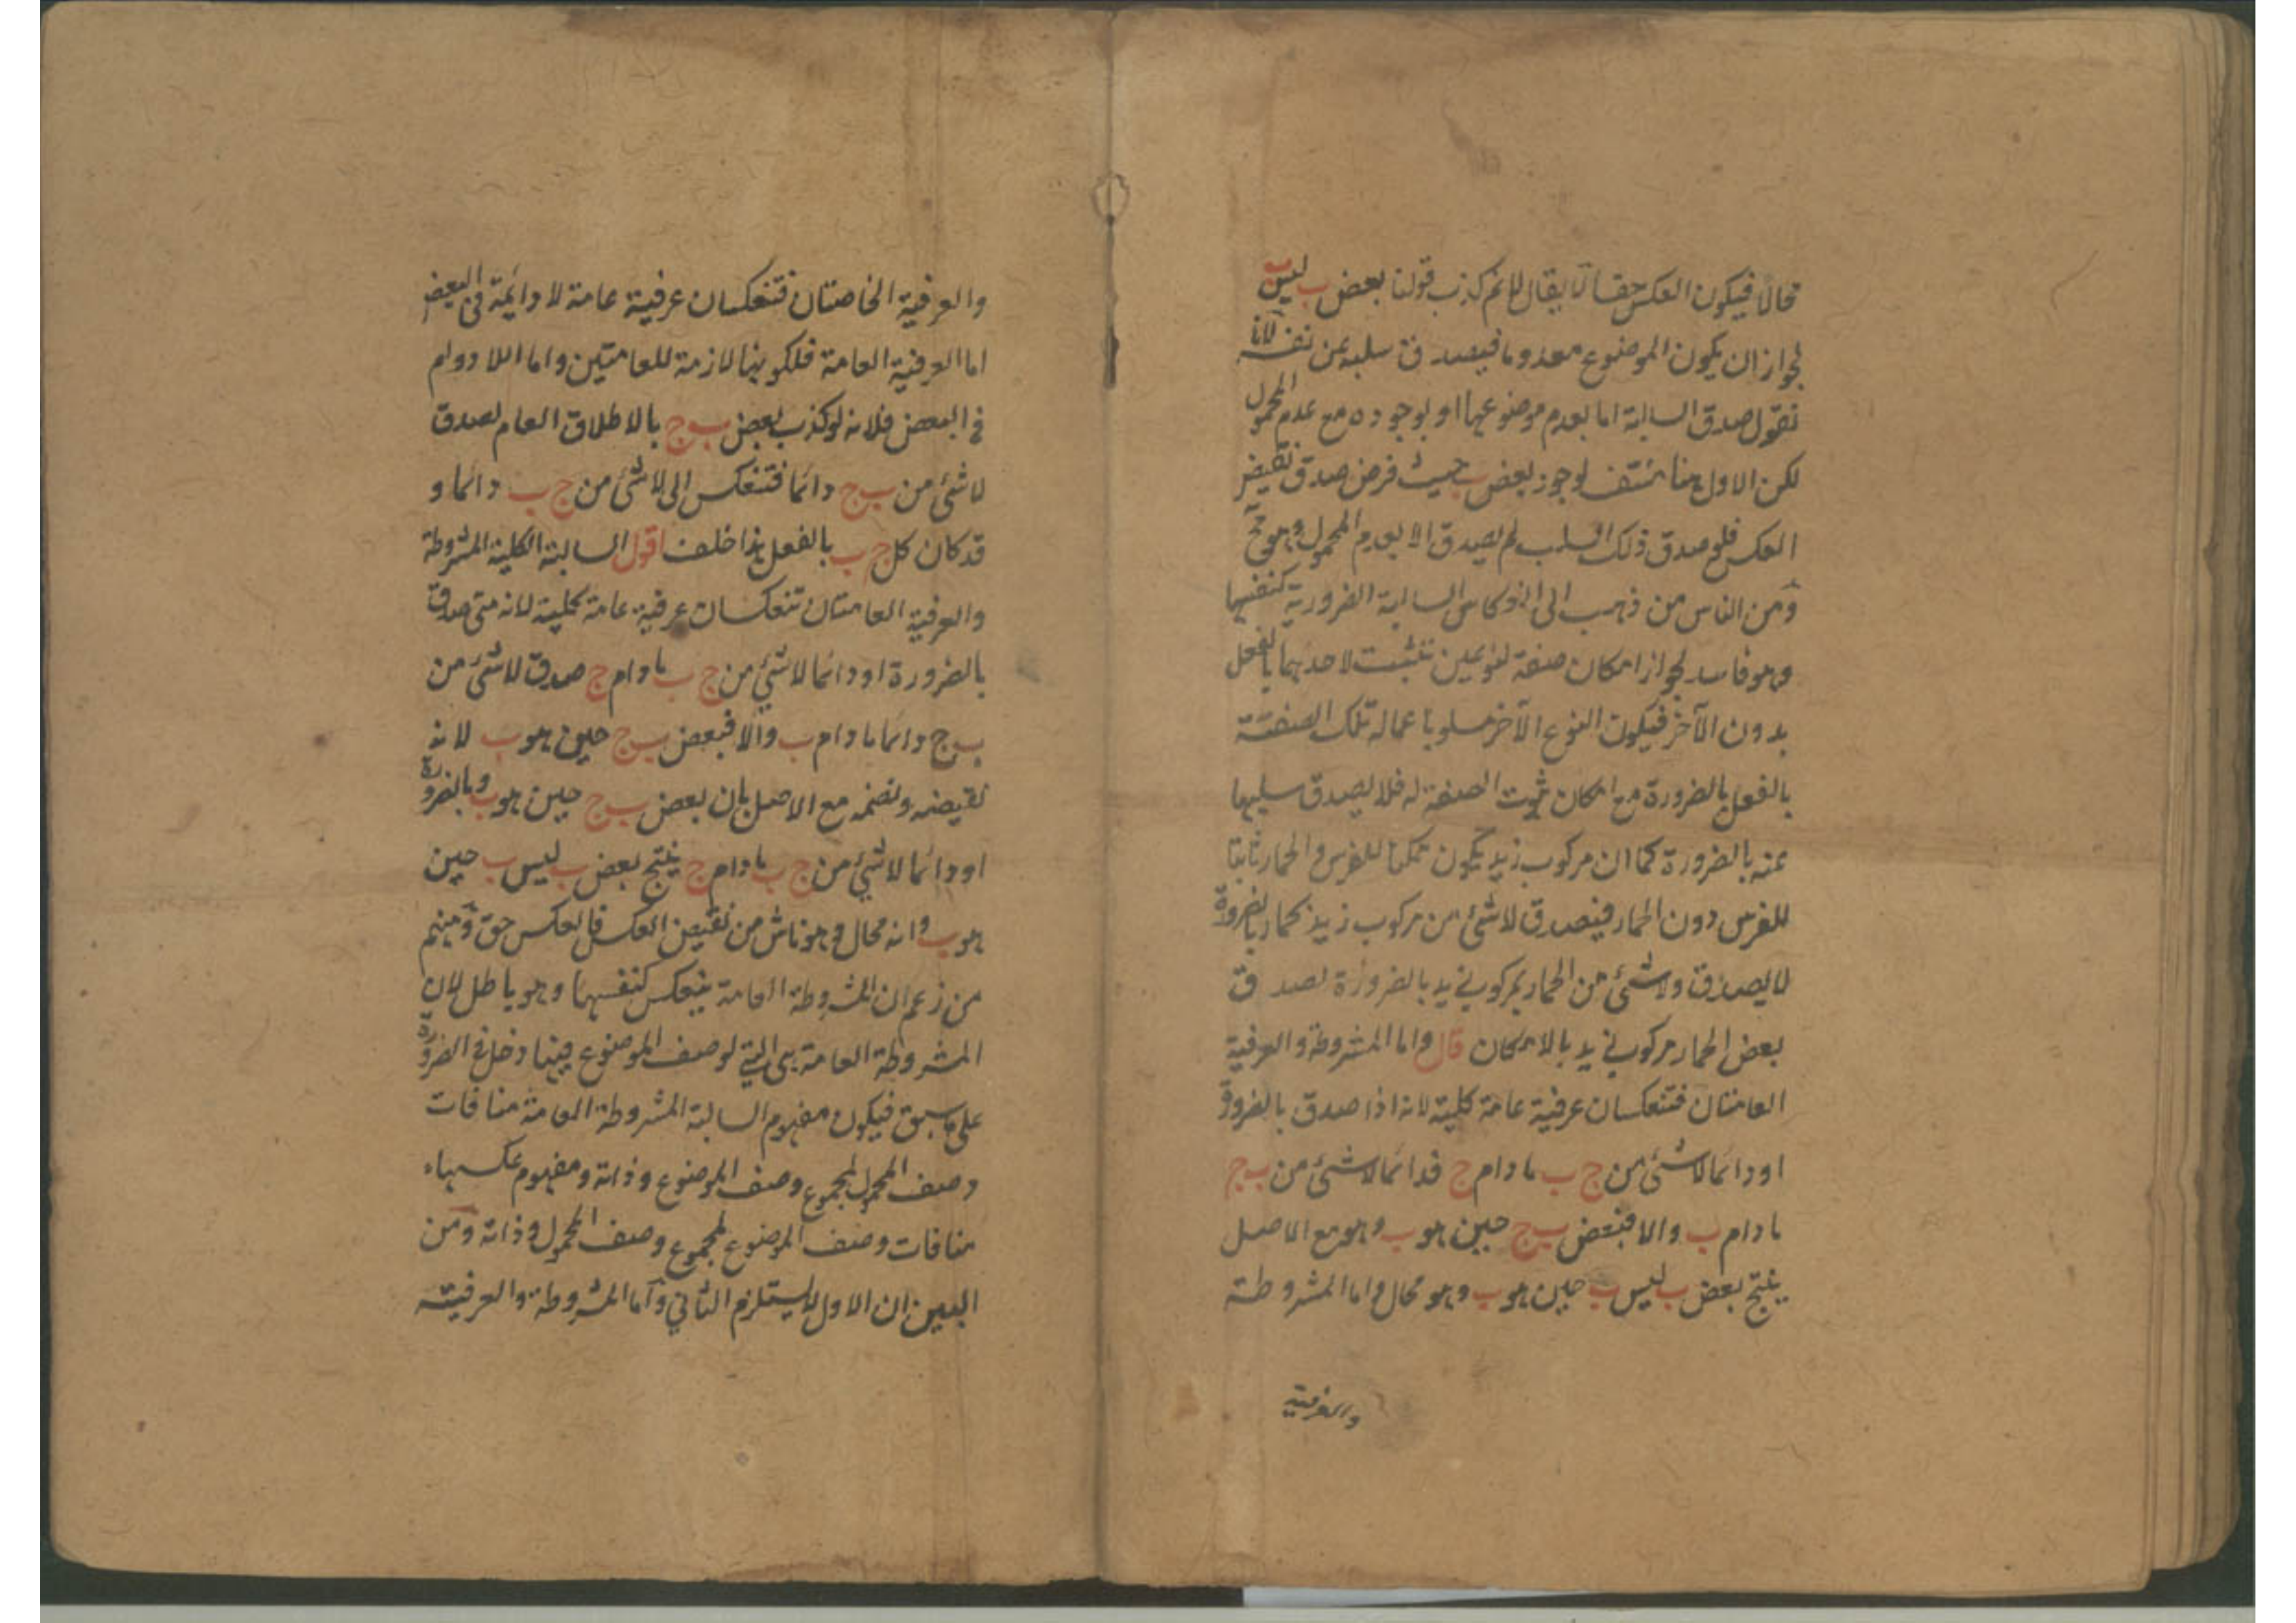 محالا فيكون العكس حقا لا يقال لا نم كذب قولنا بعض ب ليس ب
لجواز ان يكون الموضوع معدوما فيصدق سلبه عن نفسه لانا
نقول صدق السالبة اما بعدم موضوعها او بوجوده مع عدم المحمول
لكن الاول هنا منتف لوجود بعض ب حيث فرض صدق نقيض
العكس فلو صدق ذلك السلب لم يصدق الا بعدم المحمول وهو مح
ومن الناس من ذهب الى انعكاس السالبة الضرورية كنفسها
وهو فاسد لجواز امكان صفة لنوعين تثبت لاحدهما بالفعل
بدون الآخر فيكون النوع الآخر مسلوبا عماله تلك الصفة
بالفعل بالضرورة مع امكان ثبوت الصفة له فلا يصدق سلبها
عنه بالضرورة كما ان مركوب زيد يكون ممكنا للفرس والحمار ثابتا
للفرس دون الحمار فيصدق لاشئ من مركوب زيد بحمار بالضرورة
لا يصدق ولاشئ من الحمار بمركوب زيد بالضرورة لصدق
بعض الحمار مركوب زيد بالامكان قال واما المشروطة والعرفية
العامتان فتنعكسان عرفية عامة كلية لانه اذا صدق بالضرورة
او دائما لاشئ من ج ب ما دام ج فدائما لاشئ من ب ج
ما دام ب والا فبعض ب ج حين هو ب وهو مع الاصل
ينتج بعض ب ليس ب حين هو ب وهو محال واما المشروطة
والعرفية
والعرفية الخاصتان فتنعكسان عرفية عامة لا دائمة في البعض
اما العرفية العامة فلكونها لازمة للعامتين واما اللا دوام
في البعض فلانه لو كذب بعض ب ج بالاطلاق العام لصدق
لاشئ من ب ج دائما فتنعكس الى لاشئ من ج ب دائما و
قد كان كل ج ب بالفعل هذا خلف اقول السالبة الكلية المشروطة
والعرفية العامتان تنعكسان عرفية عامة كلية لانه متى صدق
بالضرورة او دائما لاشئ من ج ب ما دام ج صدق لاشئ من
ب ج دائما ما دام ب والا فبعض ب ج حين هو ب لانه
نقيضه ونضمه مع الاصل بان بعض ب ج حين هو ب وبالضرورة
او دائما لاشئ من ج ب ما دام ج ينتج بعض ب ليس ب حين
هو ب وانه محال وهو ناش من نقيض العكس فالعكس حق ومنهم
من زعم ان المشروطة العامة ينعكس كنفسها وهو باطل لان
المشروطة العامة هى التي لوصف الموضوع فيها دخل في الضرورة
على ما سبق فيكون مفهوم السالبة المشروطة العامة منافات
وصف المحمول لمجموع وصف الموضوع وذاته ومفهوم عكسهاء
منافات وصف الموضوع لمجموع وصف المحمول وذاته ومن
البين ان الاول لا يستلزم الثاني واما المشروطة والعرفية